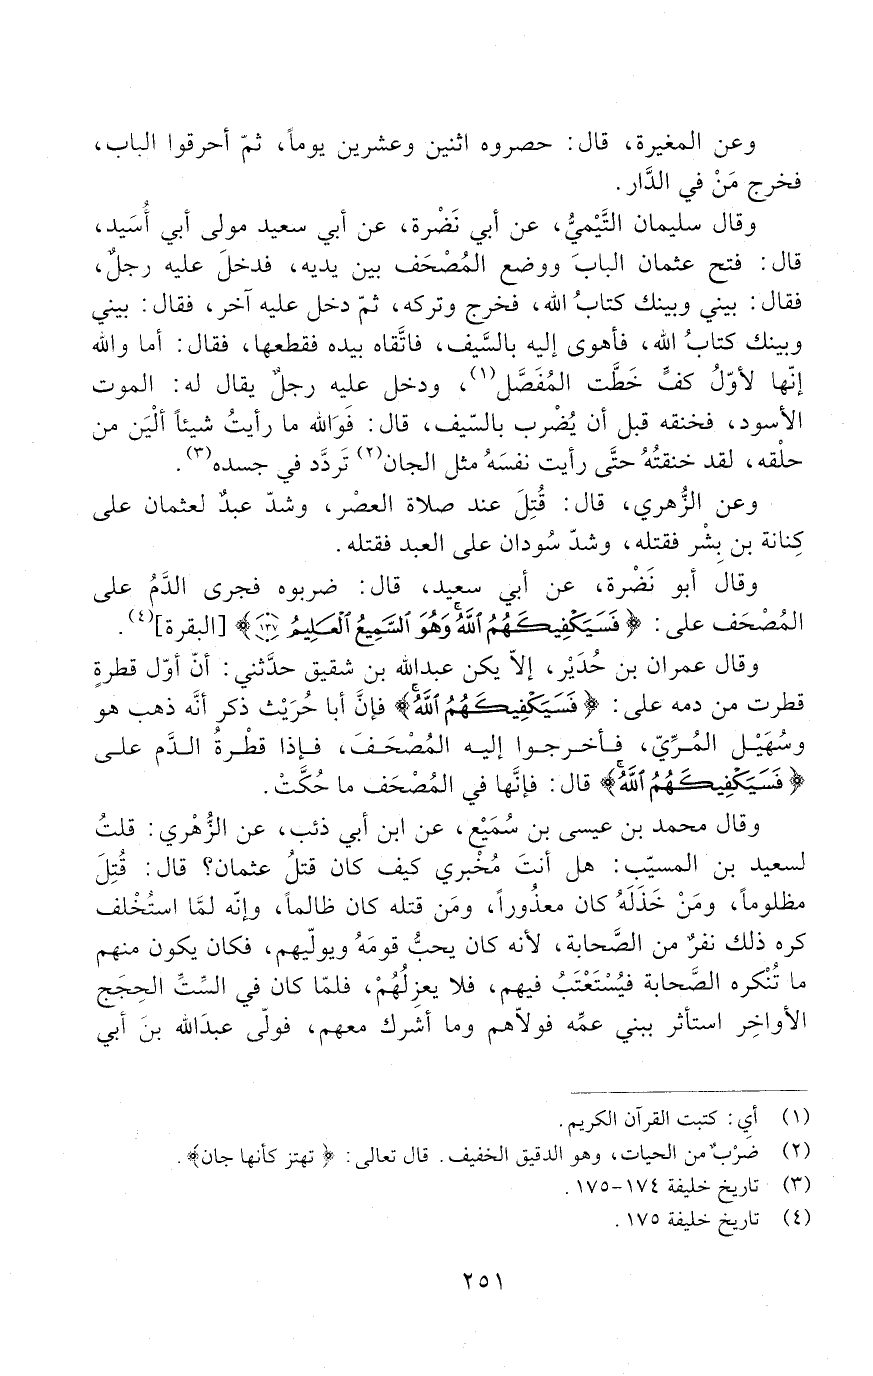 وعن المغيرة، قال: حصروه اثنين وعشرين يوماً، ثمّ أحرقوا الباب،
فخرج مَنْ في الدَّار.
وقال سليمان التَّيْميُّ، عن أبي نَضْرة، عن أبي سعيد مولى أبي أُسَيد،
قال: فتح عثمان البابَ ووضع المُصْحَف بين يديه، فدخلَ عليه رجلٌ،
فقال: بيني وبينك كتابُ الله، فخرج وتركه، ثمّ دخل عليه آخر، فقال: بيني
وبينك كتابُ الله، فأهوى إليه بالسَّيف، فاتَّقاه بيده فقطعها، فقال: أما والله
إنّها لأوّلُ كفٍّ خَطَّت المُفَصَّل(١)، ودخل عليه رجلٌ يقال له: الموت
الأسود، فخنقه قبل أن يُضْرب بالسّيف، قال: فَوَالله ما رأيتُ شيئاً ألْيَن من
حلْقه، لقد خنقتُهُ حتَّى رأيت نفسَهُ مثل الجان(٢) تَردَّد في جسده(٣).
وعن الزُّهري، قال: قُتِلَ عند صلاة العصْر، وشدّ عبدٌ لعثمان على
كِنانة بن بِشْر فقتله، وشدّ سُودان على العبد فقتله.
وقال أبو نَضْرة، عن أبي سعيد، قال: ضربوه فجرى الدَّمُ على
المُصْحَف على: ﴿فَسَيَكْفِيكَهُمُ ٱللَّهُۚ وَهُوَ ٱلسَّمِيعُ ٱلْعَلِيمُ ١٣٧﴾ [البقرة](٤).
وقال عمران بن حُدَيْر، إلاّ يكن عبدالله بن شقيق حدَّثني: أنّ أوّل قطرةٍ
قطرت من دمه على: ﴿فَسَيَكْفِيكَهُمُ ٱللَّهُۚ﴾ فإنَّ أبا حُرَيْث ذكر أنَّه ذهب هو
وسُهَيْل المُرِّيّ، فأخرجوا إليه المُصْحَفَ، فإذا قطْرةُ الدَّم على
﴿فَسَيَكْفِيكَهُمُ ٱللَّهُۚ﴾ قال: فإنَّها في المُصْحَف ما حُكَّتْ.
وقال محمد بن عيسى بن سُمَيْع، عن ابن أبي ذئب، عن الزُّهْري: قلتُ
لسعيد بن المسيّب: هل أنتَ مُخْبري كيف كان قتلُ عثمان؟ قال: قُتِلَ
مظلوماً، ومَنْ خَذَلَهُ كان معذُوراً، ومَن قتله كان ظالماً، وإنّه لمَّا استُخْلف
كره ذلك نفرٌ من الصَّحابة، لأنه كان يحبُّ قومَهُ ويولّيهم، فكان يكون منهم
ما تُنْكره الصَّحابة فيُسْتَعْتَبُ فيهم، فلا يعزِلُهُمْ، فلمّا كان في السِّتِّ الحِجَج
الأواخِر استأثر ببني عمِّه فولاّهم وما أشرك معهم، فولّى عبدَالله بنَ أبي
(١) أي: كتبت القرآن الكريم.
(٢) ضرْبٌ من الحيات، وهو الدقيق الخفيف. قال تعالى: ﴿تهتز كأنها جان﴾.
(٣) تاريخ خليفة ١٧٤-١٧٥.
(٤) تاريخ خليفة ١٧٥.
٢٥١